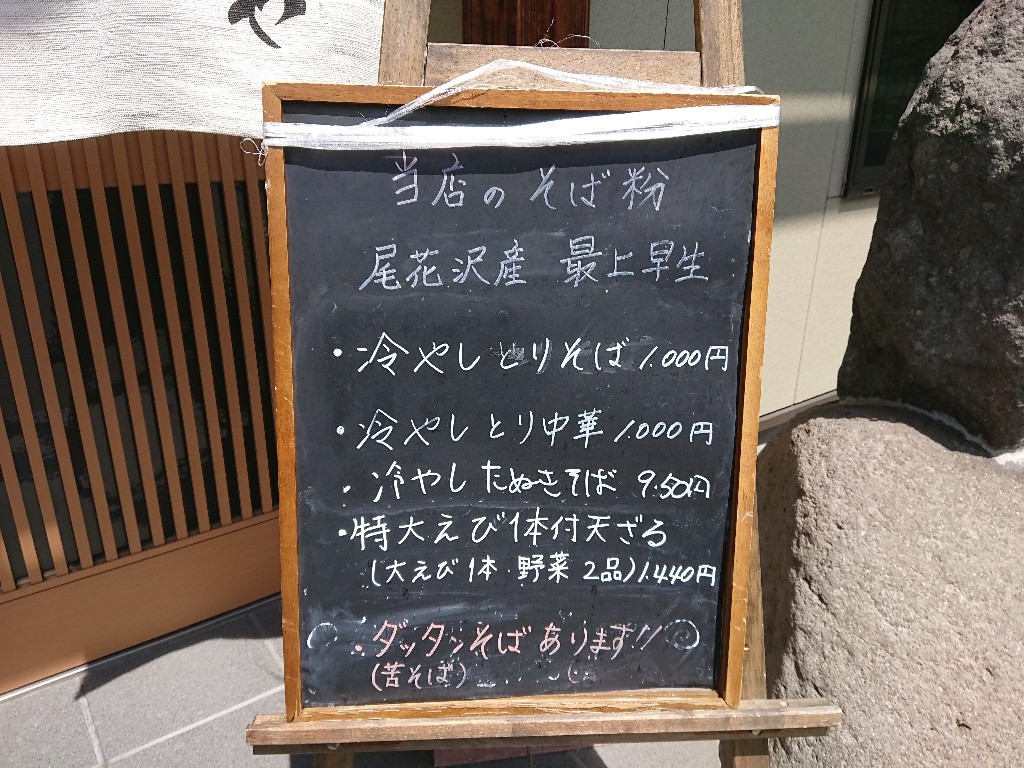 や
当店のそば粉
尾花沢産 最上早生
・冷やしとりそば 1.000円
・冷やしとり中華 1.000円
・冷やしたぬきそば 950円
・特大えび1本付天ざる
(大えび1本 野菜2品)1.440円
・ダッタンそばあります!!
(苦そば)